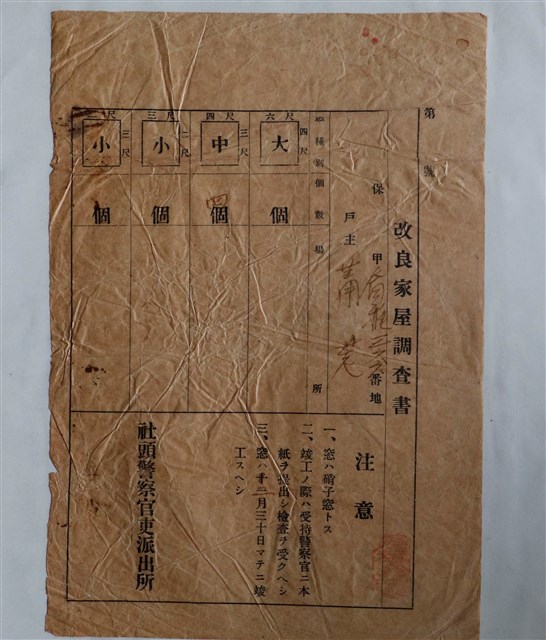 第 號
改良家屋調查書
保 甲 番地
戶主 蕭
種別 個數 場 所
六尺 四尺
大
個
四尺 三尺
中
四個
三尺 二尺
小
個
二尺 三尺
小
個
注意
一、窓ハ硝子窓トス
二、竣工ノ際ハ受持警察官ニ本
紙ヲ提出シ檢査ヲ受クヘシ
三、窓ハ十二月三十日マテニ竣
工スヘシ
社頭警察官吏派出所